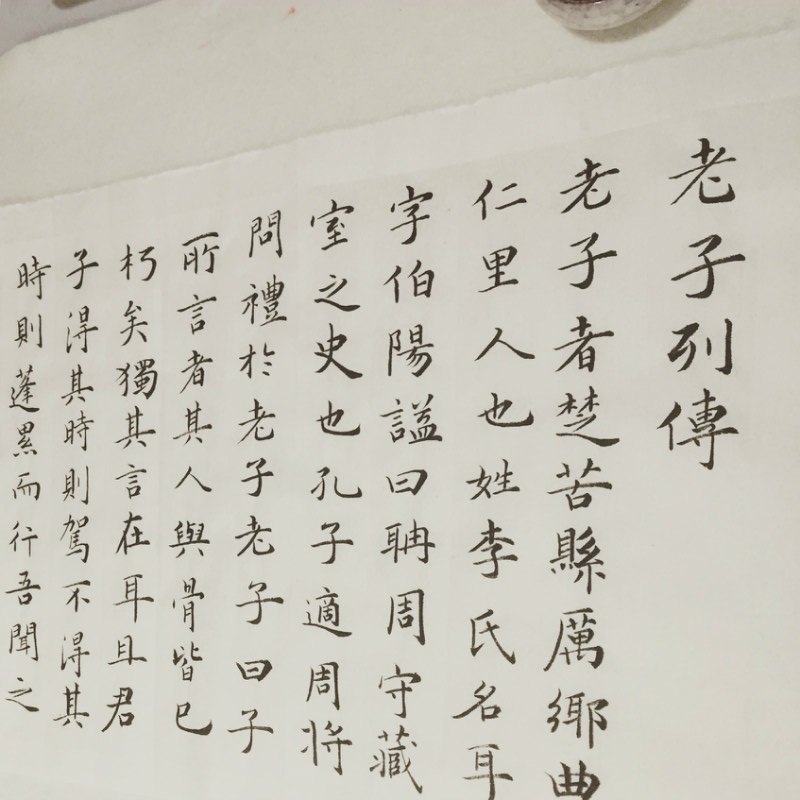 老子列傳
老子者楚苦縣厲鄉曲
仁里人也姓李氏名耳
字伯陽謚曰聃周守藏
室之史也孔子適周將
問禮於老子老子曰子
所言者其人與骨皆已
朽矣獨其言在耳且君
子得其時則駕不得其
時則蓬累而行吾聞之